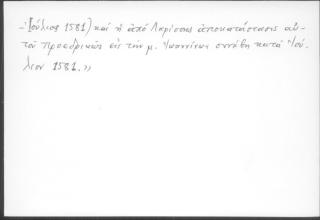 -Ἰούλιος 1581) καὶ ἡ ἀπὸ Λαρίσσης ἀποκατάστασις αὐ-
τοῦ προεδρικῶς εἰς τὴν μ. Ἰωαννίνων συνέβη κατὰ Ἰού-
λιον 1581.»